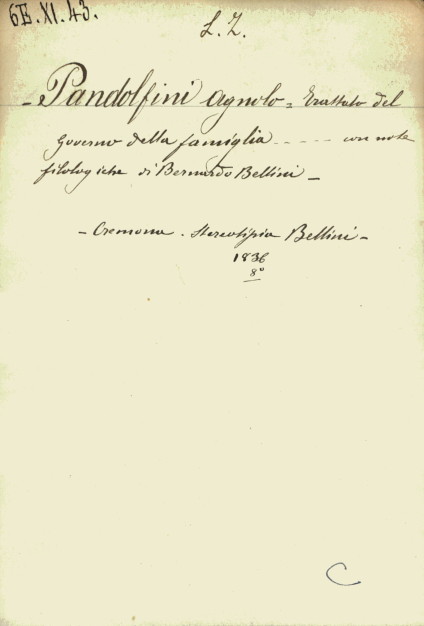 6E.XI.43.
L. Z.
- Pandolfini Agnolo = Trattato del
Governo della famiglia - - - - - con note
filologiche di Bernardo Bellini -
- Cremona . Stereotipia Bellini -
1836
8°
C